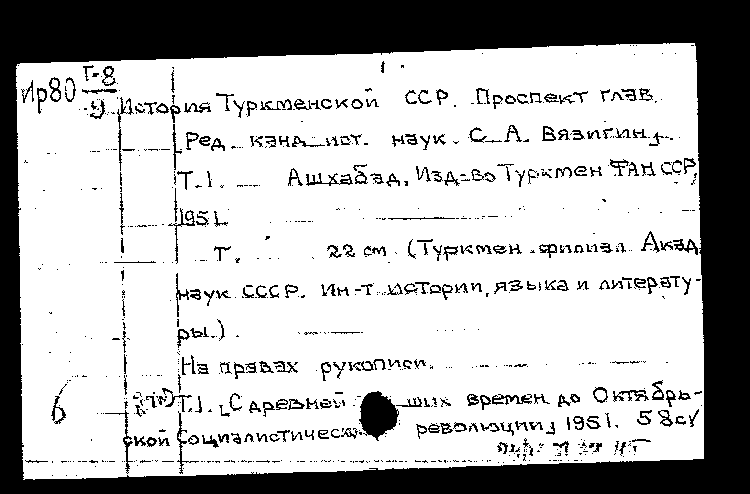 Ир80 Т-8
9 История Туркменской ССР. Проспект глав.
[Ред. канд. ист. наук. С. А. Вязигин].
Т.1. — Ашхабад, Изд-во Туркмен ФАН СССР,
1951.
Т. 22 см. (Туркмен. филиал Акад.
наук СССР. Ин-т истории, языка и литерату-
ры.)
На правах рукописи.
6 Т.1. [С древней ших времен до Октябрь-
ской Социалистическ революции] 1951. 58с.